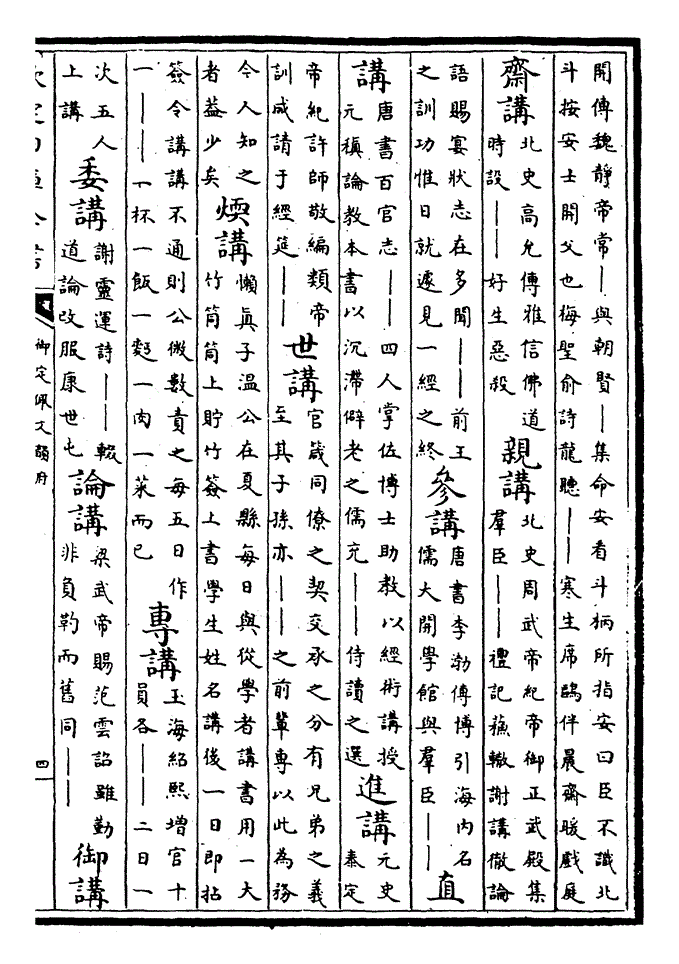 開傳魏靜帝常｜與朝賢｜集命安看斗柄所指安曰臣不識北
斗按安士開父也梅聖俞詩龍聽｜｜寒生席臨伴晨齋暖戲庭
齋講北史高允傳雅信佛道
時設｜｜好生惡殺
親講北史周武帝紀帝御正武殿集
羣臣｜｜禮記蘇轍謝講徹論
語賜宴狀志在多聞｜｜前王
之訓功惟日就遽見一經之終
參講唐書李渤傳博引海內名
儒大開學館與羣臣｜｜
直
講唐書百官志｜｜四人掌佐博士助教以經術講授
元稹論教本書以沉滯僻老之儒充｜｜侍讀之選
進講元史
泰定
帝紀許師敬編類帝
訓成請于經筵｜｜
世講官箴同僚之契交承之分有兄弟之義
至其子孫亦｜｜之前輩專以此為務
今人知之
者益少矣
煗講懶眞子溫公在夏縣每日與從學者講書用一大
竹筒筒上貯竹簽上書學生姓名講後一日即拈
簽令講講不通則公微數責之每五日作
一｜｜一杯一飯一麪一肉一菜而已
專講玉海紹熙增官十
員各｜｜二日一
次五人
上講
委講謝靈運詩｜｜輟
道論改服康世屯
論講梁武帝賜范雲詔雖勤
非負靮而舊同｜｜
御講
御定佩文韻府
四